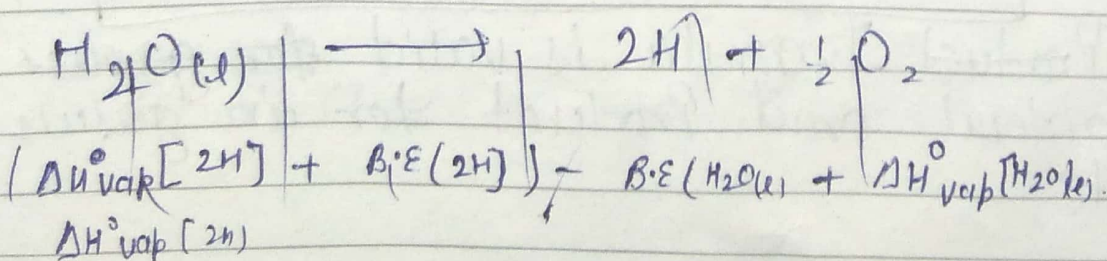 H₂O(l) ⟶ 2H + ½ O₂
(ΔH°vap[2H] + B.E(2H]) - B.E(H₂O(l) + ΔH°vap[H₂O(l).
ΔH°vap[2H)